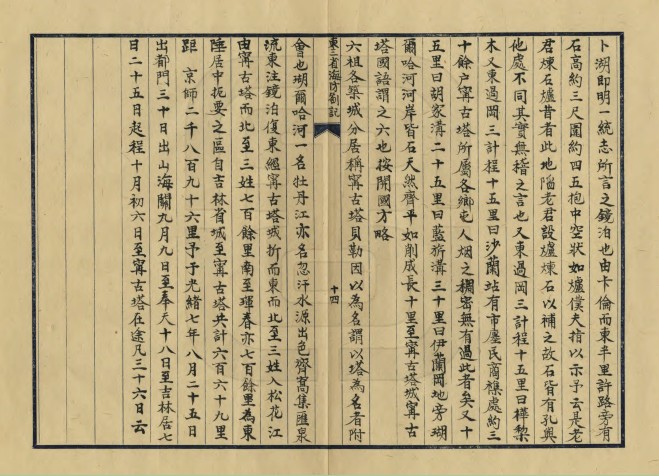 卜湖即明一統志所言之鏡泊也由卡倫而東半里許路旁有
石高約三尺圍約四五抱中空狀如爐僕夫指以示予云是老
君煉石爐昔者此地陷老君設爐煉石以補之故石皆有孔與
他處不同其實無稽之言也又東過岡三計程十五里曰樺樹
木又東過岡三計程十五里曰沙蘭站有市廛民商襍處約三
十餘戶甯古塔所屬各鄉屯人烟之稠密無有過此者矣又十
五里曰胡家溝二十五里曰藍旂溝三十里曰伊蘭岡地旁瑚
爾哈河河岸皆石天然齊平如削成長十里至甯古塔城甯古
塔國語謂之六也按開國方略
六祖各築城分居稱甯古塔貝勒因以為名謂以塔為名者附
東三省海防劄記
十四
會也瑚爾哈河一名牡丹江亦名忽汗水源出色齊窩集匯泉
流東注鏡泊復東經甯古塔城折而東而北至三姓入松花江
由甯古塔而北至三姓七百餘里南至琿春亦七百餘里為東
陲居中扼要之區自吉林省城至甯古塔共計六百六十九里
距 京師二千八百九十六里予于光緒七年八月二十五日
出都門三十日出山海關九月九日至奉天十八日至吉林居七
日二十五日起程十月初六日至甯古塔在途凡三十六日云